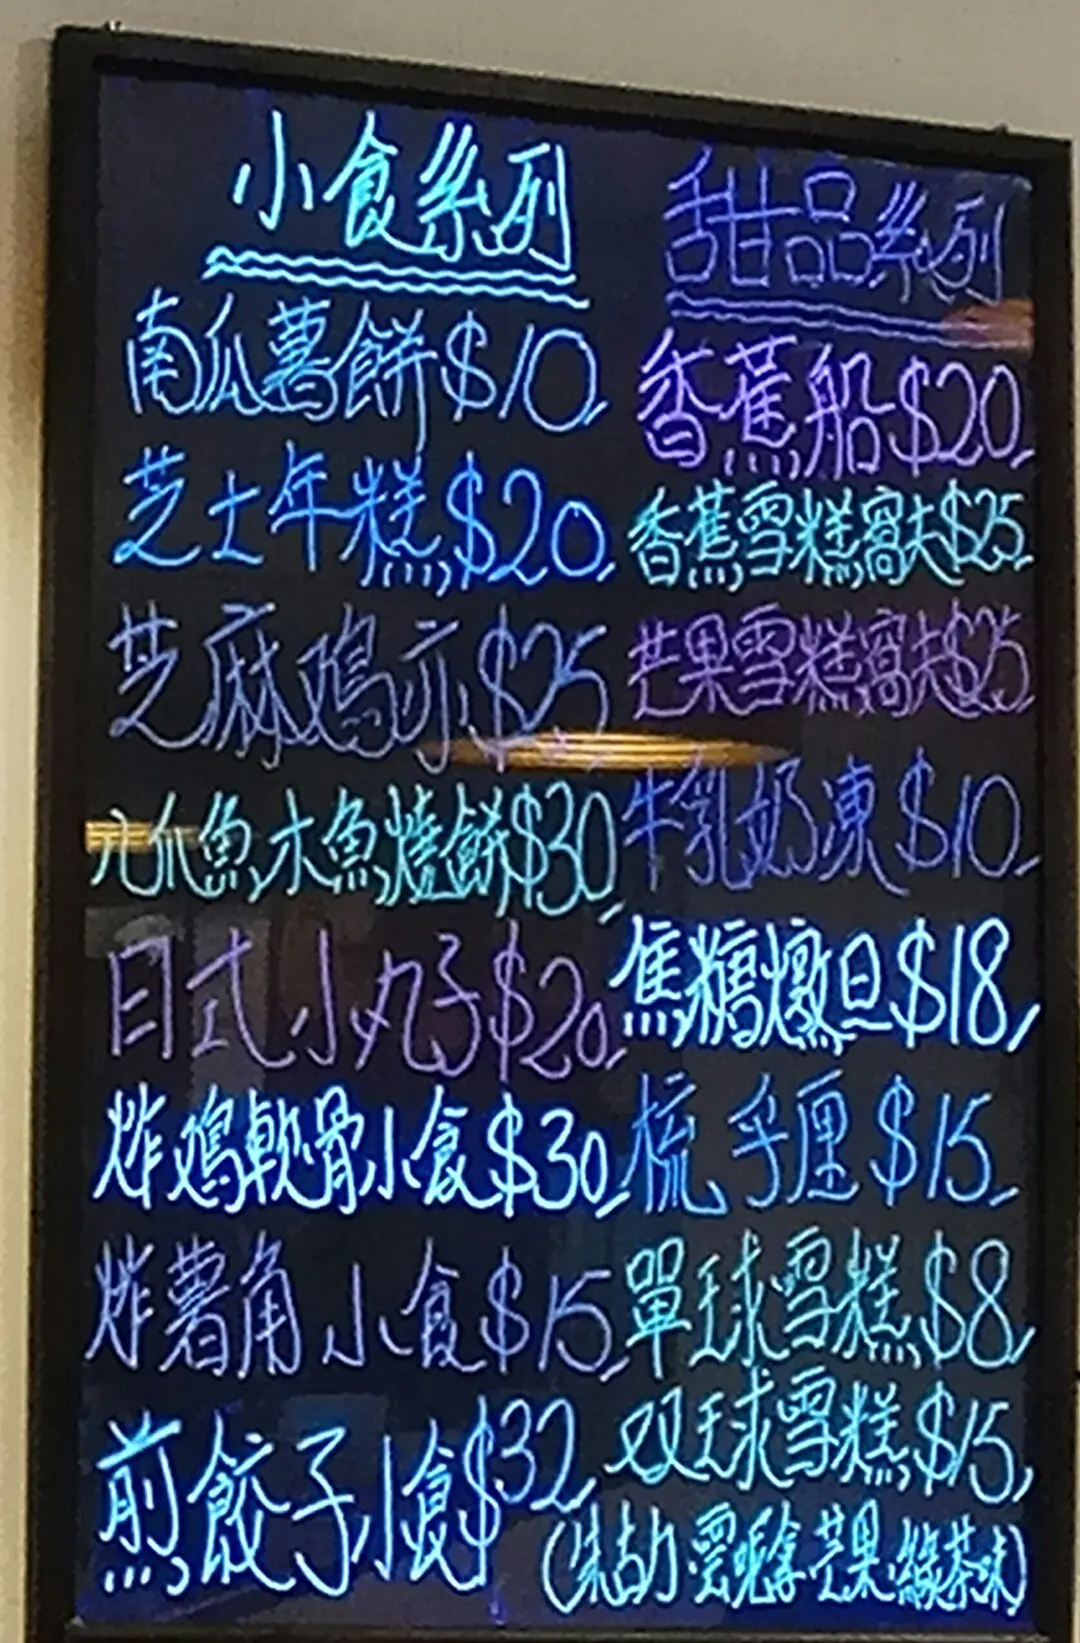 小食系列
南瓜薯餅$10
芝士年糕$20
芝麻鸡亦$25
八爪魚木魚燒餅$30
日式小丸子$20
炸鸡軟骨小食$30
炸薯角小食$15
煎餃子小食$32
甜品系列
香蕉船$20
香蕉雪糕窩夫$25
芒果雪糕窩夫$25
牛乳奶凍$10
焦糖燉旦$18
梳乎厘$15
單球雪糕$8
双球雪糕$15
(朱古力.雲呢拿.芒果.綠茶味)